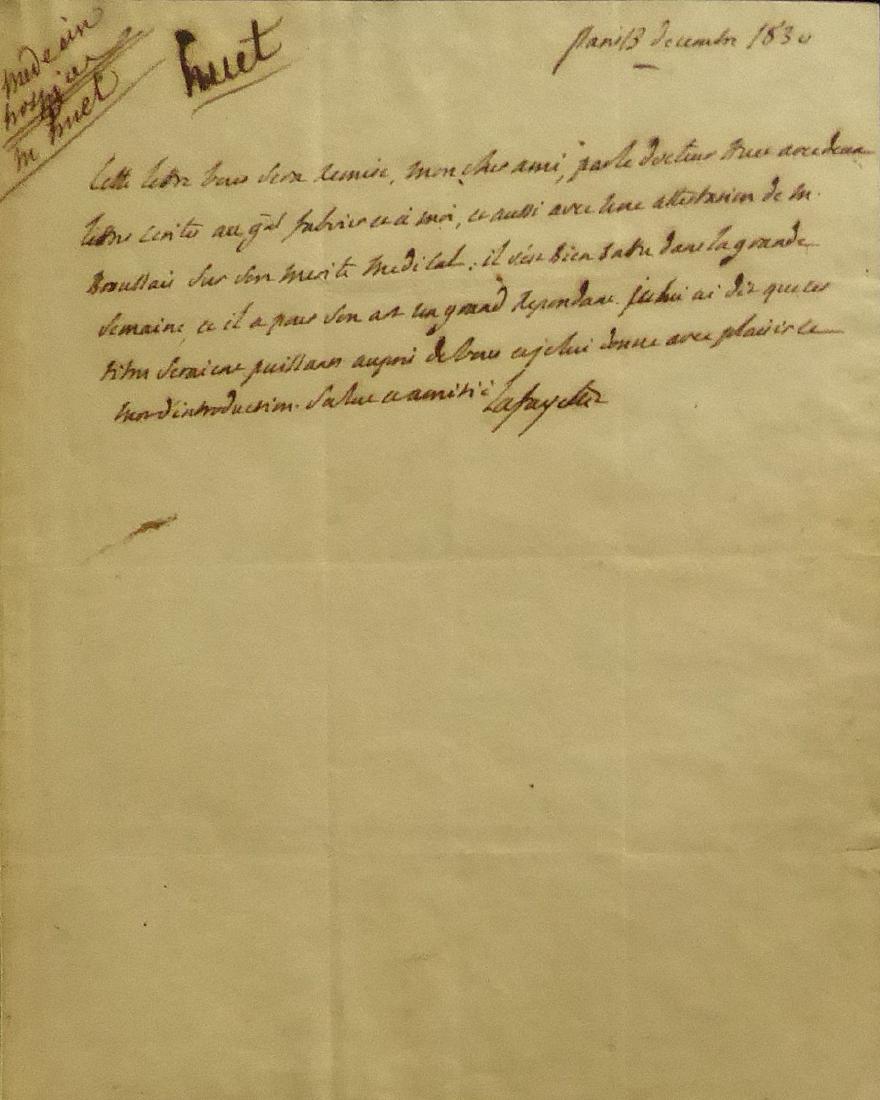 medecin
hospices
M huet
huet
Paris 13 decembre 1830
Cette lettre vous sera remise, mon cher ami, par le docteur huet avec deux
lettres ecrites au gāl fabvier et à moi, et aussi avec une attestation de M.
Broussais sur son merite medical; il s'est bien battu dans la grande
semaine, et il a pour son art un grand repondant. je lui ai dit que ces
titres seraient puissans auprès de vous et je lui donne avec plaisir ce
mot d'introduction. Salut et amitié
Lafayette